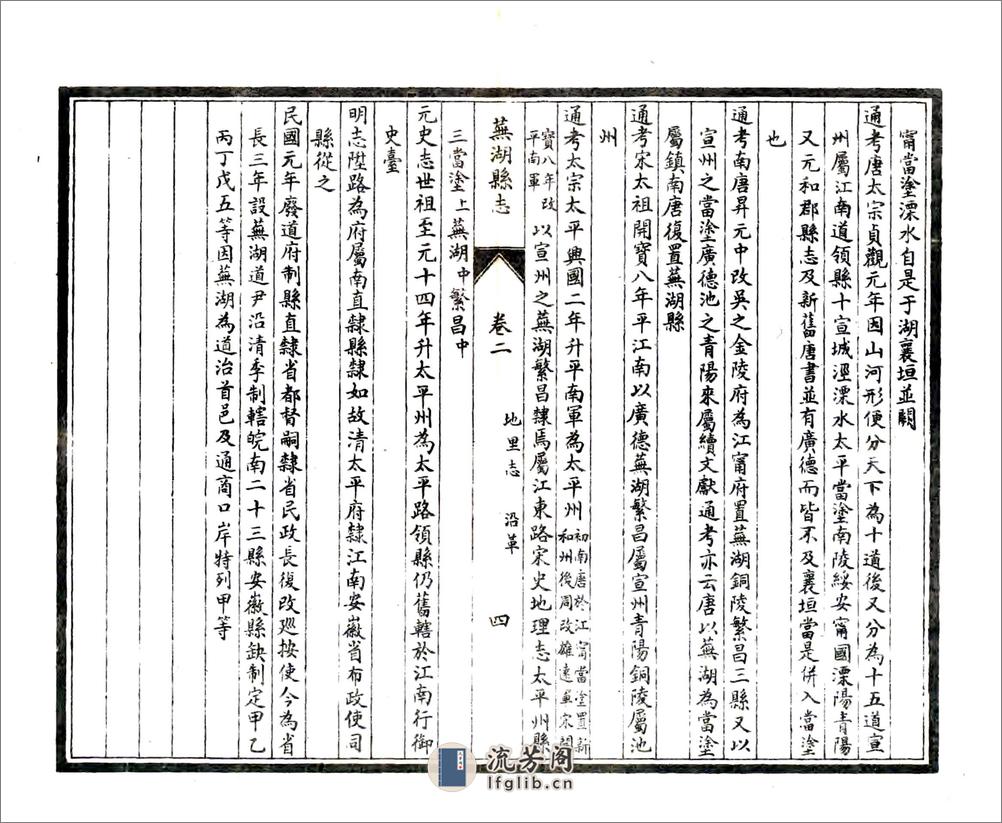 甯當塗溧水自是于湖襄垣並闕
通考唐太宗貞觀元年因山河形便分天下為十道後又分為十五道宣
州屬江南道領縣十宣城涇溧水太平當塗南陵綏安甯國溧陽青陽
又元和郡縣志及新舊唐書並有廣德而皆不及襄垣當是併入當塗
也
通考南唐昇元中改吳之金陵府為江甯府置蕪湖銅陵繁昌三縣又以
宣州之當塗廣德池之青陽來屬續文獻通考亦云唐以蕪湖為當塗
屬鎮南唐復置蕪湖縣
通考宋太祖開寶八年平江南以廣德蕪湖繁昌屬宣州青陽銅陵屬池
州
通考太宗太平興國二年升平南軍為太平州初南唐於江甯當塗置新和州後周改雄遠軍宋開
寶八年改平南軍以宣州之蕪湖繁昌隸焉屬江東路宋史地理志太平州縣
蕪湖縣志 卷二 地里志 沿革 四
三當塗上蕪湖中繁昌中
元史志世祖至元十四年升太平州為太平路領縣仍舊轄於江南行御
史臺
明志陞路為府屬南直隸縣隸如故清太平府隸江南安徽省布政使司
縣從之
民國元年廢道府制縣直隸省都督嗣隸省民政長復改巡按使今為省
長三年設蕪湖道尹沿清季制轄皖南二十三縣安徽縣缺制定甲乙
丙丁戊五等因蕪湖為道治首邑及通商口岸特列甲等
流芳阁
lfglib.cn